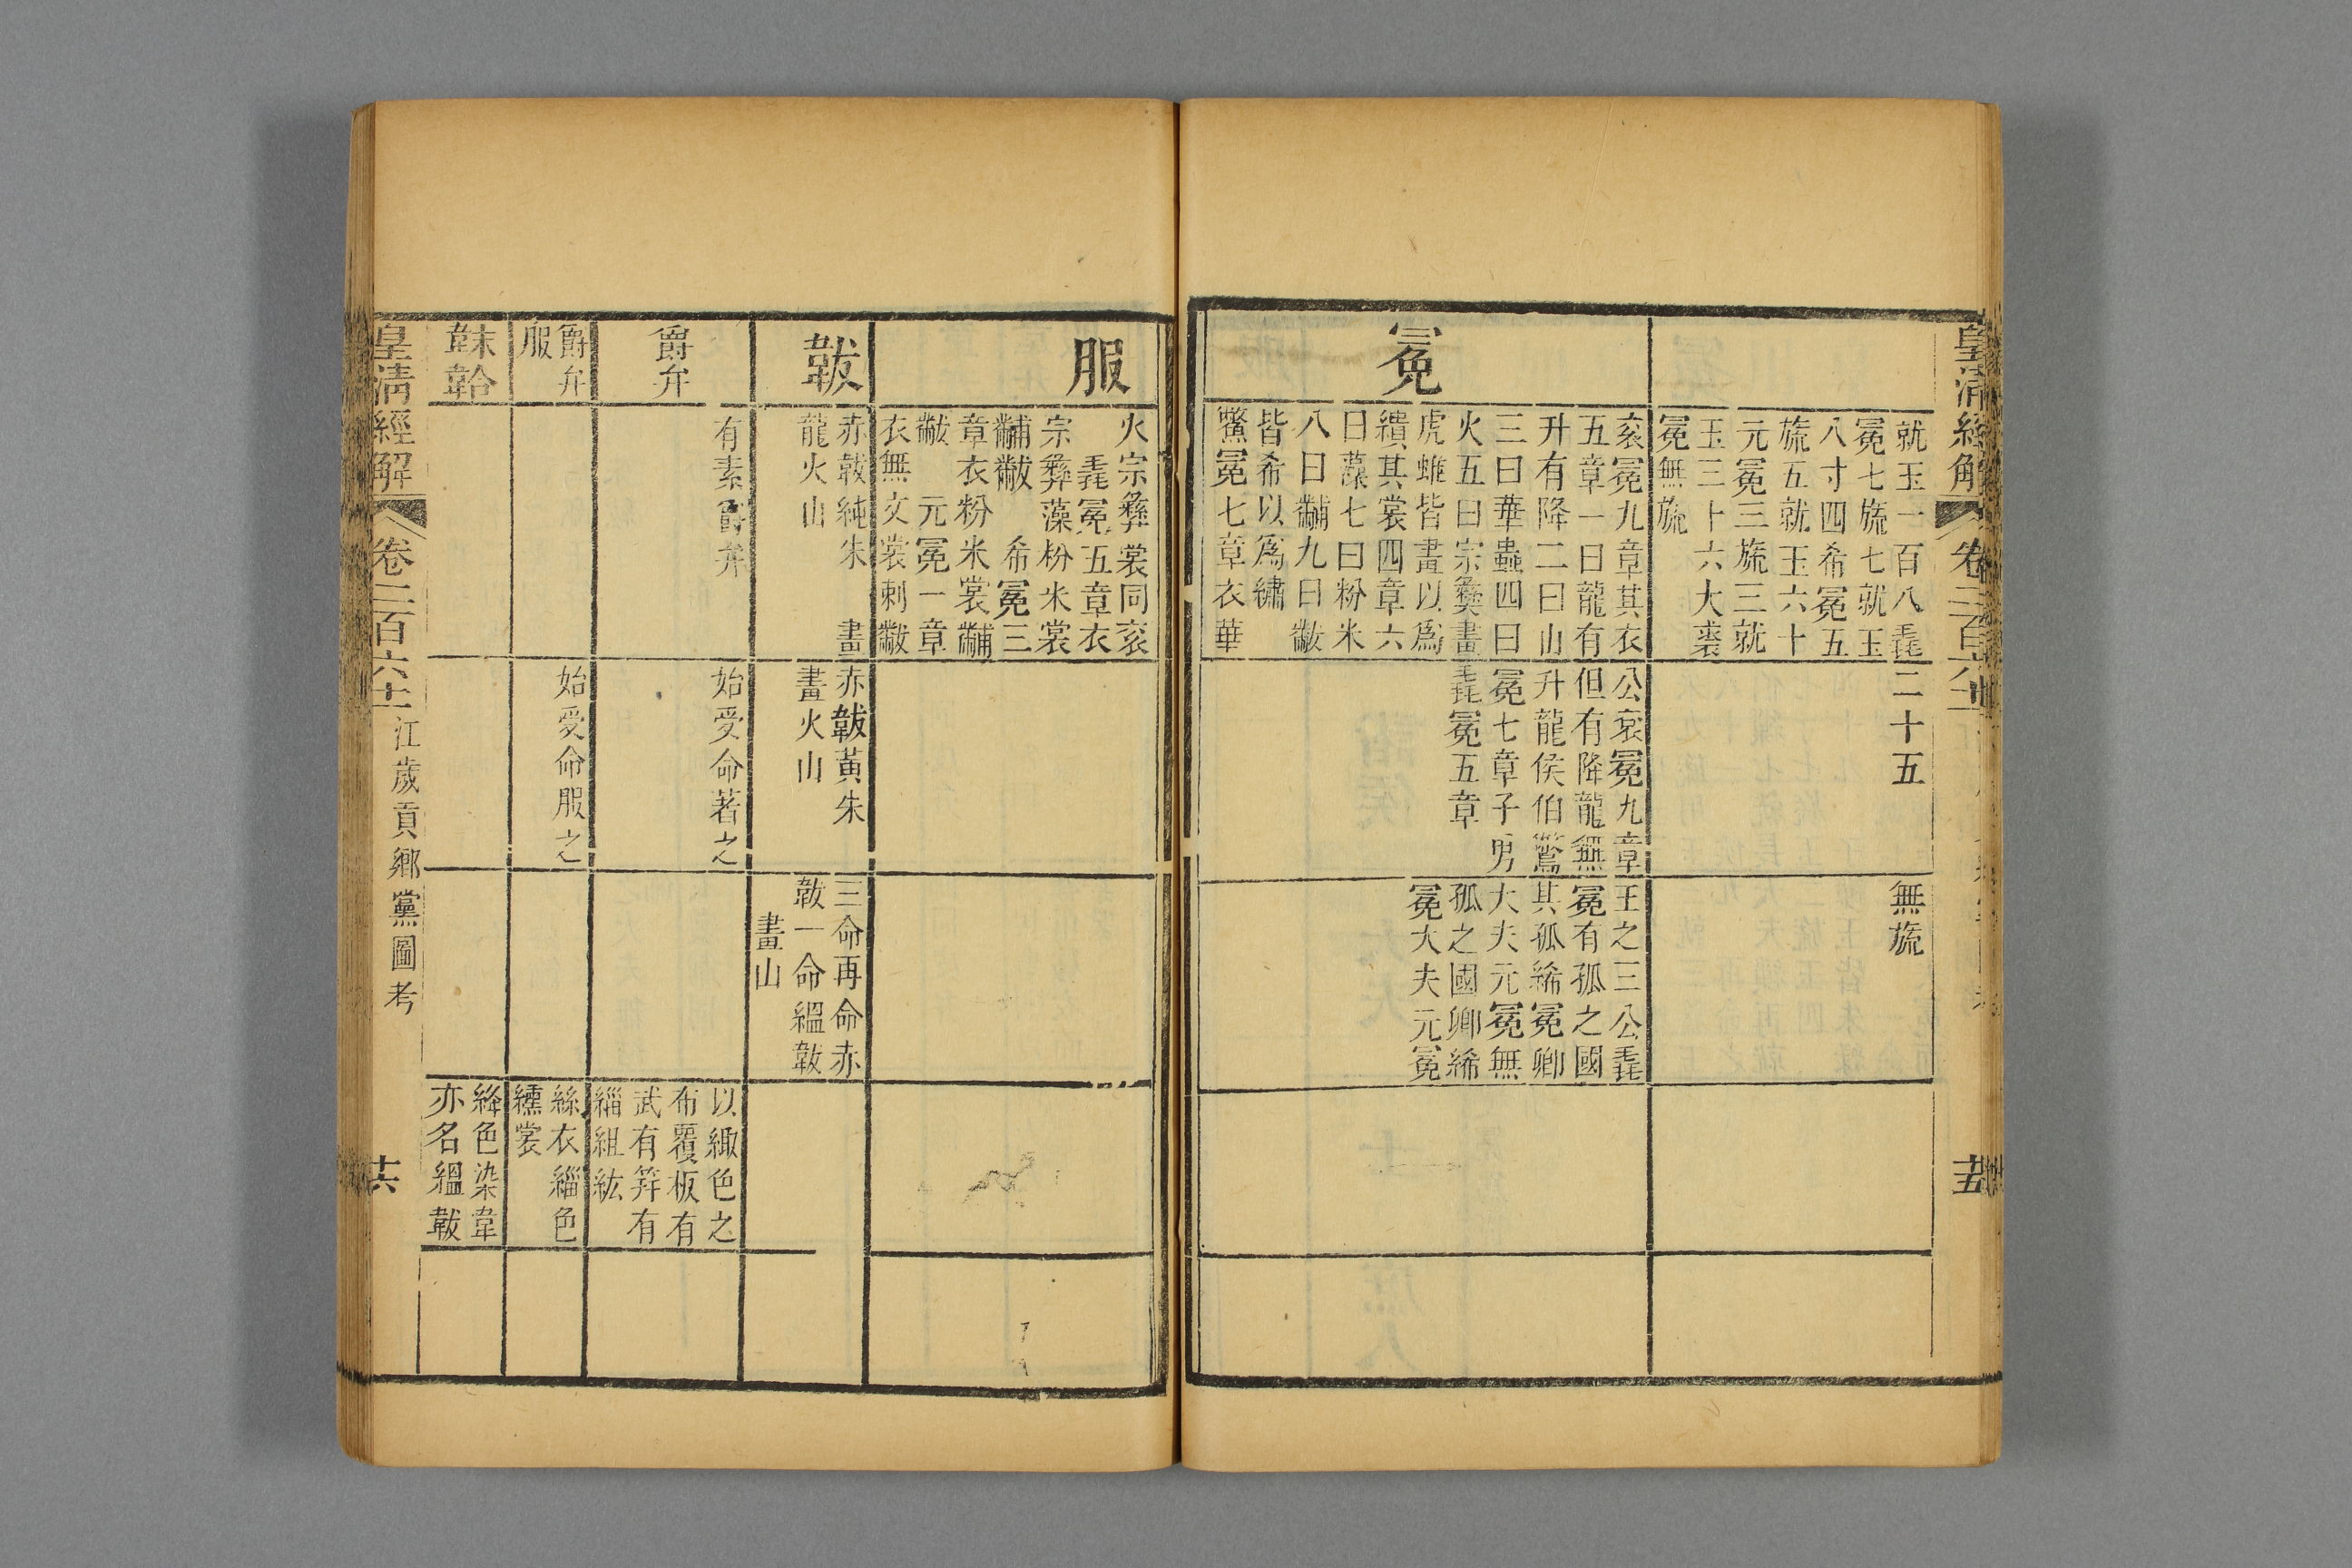 就玉一百八毳
冕七旒七就玉
八寸四希冕五
旒五就玉六十
元冕三旒三就
玉三十六大裘
冕無旒
二十五
無旒
冕
袞冕九章其衣
五章一曰龍有
升有降二曰山
三曰華蟲四曰
火五曰宗彝畫
虎蜼皆畫以爲
繢其裳四章六
曰藻七曰粉米
八曰黼九曰黻
皆希以爲繡
鷩冕七章衣華
公袞冕九章
但有降龍無
升龍侯伯鷩
冕七章子男
毳冕五章
王之三公毳
冕有孤之國
其孤絺冕卿
大夫元冕無
孤之國卿絺
冕大夫元冕
十五
服
火宗彝裳同袞
毳冕五章衣
宗彝藻粉米裳
黼黻 希冕三
章衣粉米裳黼
黻 元冕一章
衣無文裳刺黻
韍
赤韍純朱 畫
龍火山
赤韍黃朱
畫火山
三命再命赤
韍一命縕韍
畫山
爵弁
有素爵弁
始受命著之
以緅色之
布覆板有
武有笄有
緇組紘
爵弁
服
始受命服之
絲衣緇色
纁裳
韎韐
絳色染韋
亦名縕韍
皇淸經解 卷二百六十一 江歲貢鄉黨圖考 十六